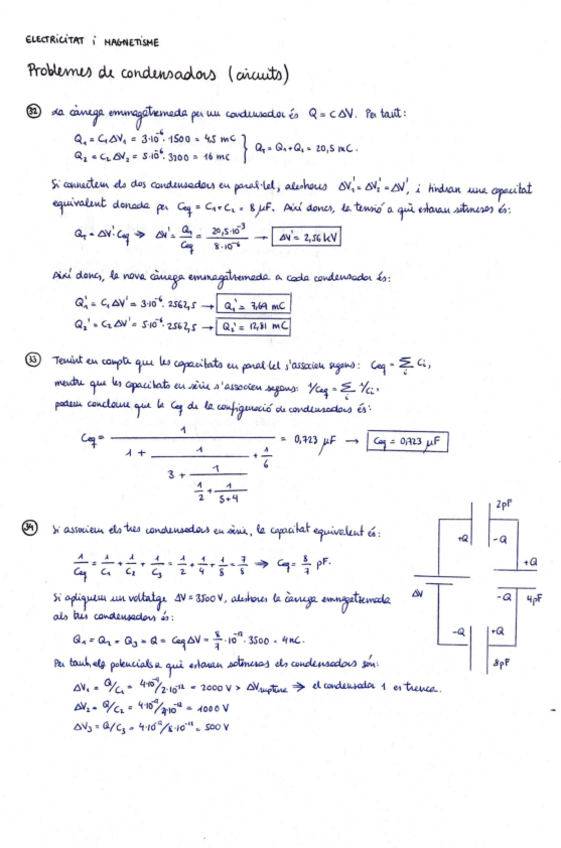 ELECTRICITAT i MAGNETISME
Problemes de condensadors (circuits)
32 La càrega emmagatzemada per un condensador és Q = C ΔV. Per tant:
Q₁ = C₁ΔV₁ = 3·10⁻⁶·1500 = 4,5 mC
Q₂ = C₂ΔV₂ = 5·10⁻⁶·3200 = 16 mC } Q_T = Q₁+Q₂ = 20,5 mC.
Si connectem els dos condensadors en paral·lel, aleshores ΔV₁' = ΔV₂' = ΔV', i tindran una capacitat
equivalent donada per Ceq = C₁+C₂ = 8 μF. Així doncs, la tensió a què estaran sotmesos és:
Q_T = ΔV' Ceq ⇒ ΔV' = Q_T/Ceq = 20,5·10⁻³/8·10⁻⁶ → ΔV' = 2,56 kV
Així doncs, la nova càrega emmagatzemada a cada condensador és:
Q₁' = C₁ ΔV' = 3·10⁻⁶·2562,5 → Q₁' = 7,69 mC
Q₂' = C₂ ΔV' = 5·10⁻⁶·2562,5 → Q₂' = 12,81 mC
33 Tenint en compte que les capacitats en paral·lel s'associen segons: Ceq = Σᵢ Cᵢ,
mentre que les capacitats en sèrie s'associen segons: 1/Ceq = Σᵢ 1/Cᵢ,
podem concloure que la Ceq de la configuració de condensadors és:
Ceq = 1/(1 + 1/(3 + 1/(1/2 + 1/(5+4))) + 1/6) = 0,723 μF → Ceq = 0,723 μF
34 Si associem els tres condensadors en sèrie, la capacitat equivalent és:
1/Ceq = 1/C₁ + 1/C₂ + 1/C₃ = 1/2 + 1/4 + 1/8 = 7/8 ⇒ Ceq = 8/7 pF.
Si apliquem un voltatge ΔV = 3500 V, aleshores la càrega emmagatzemada
als tres condensadors és:
Q₁ = Q₂ = Q₃ = Q = Ceq ΔV = 8/7·10⁻¹²·3500 = 4 nC.
Per tant, els potencials a què estaran sotmesos els condensadors són:
ΔV₁ = Q/C₁ = 4·10⁻⁹/2·10⁻¹² = 2000 V > ΔV ruptura ⇒ el condensador 1 es trenca.
ΔV₂ = Q/C₂ = 4·10⁻⁹/4·10⁻¹² = 1000 V
ΔV₃ = Q/C₃ = 4·10⁻⁹/8·10⁻¹² = 500 V
2pF
+Q -Q
+Q
ΔV -Q 4pF
-Q +Q
8pF